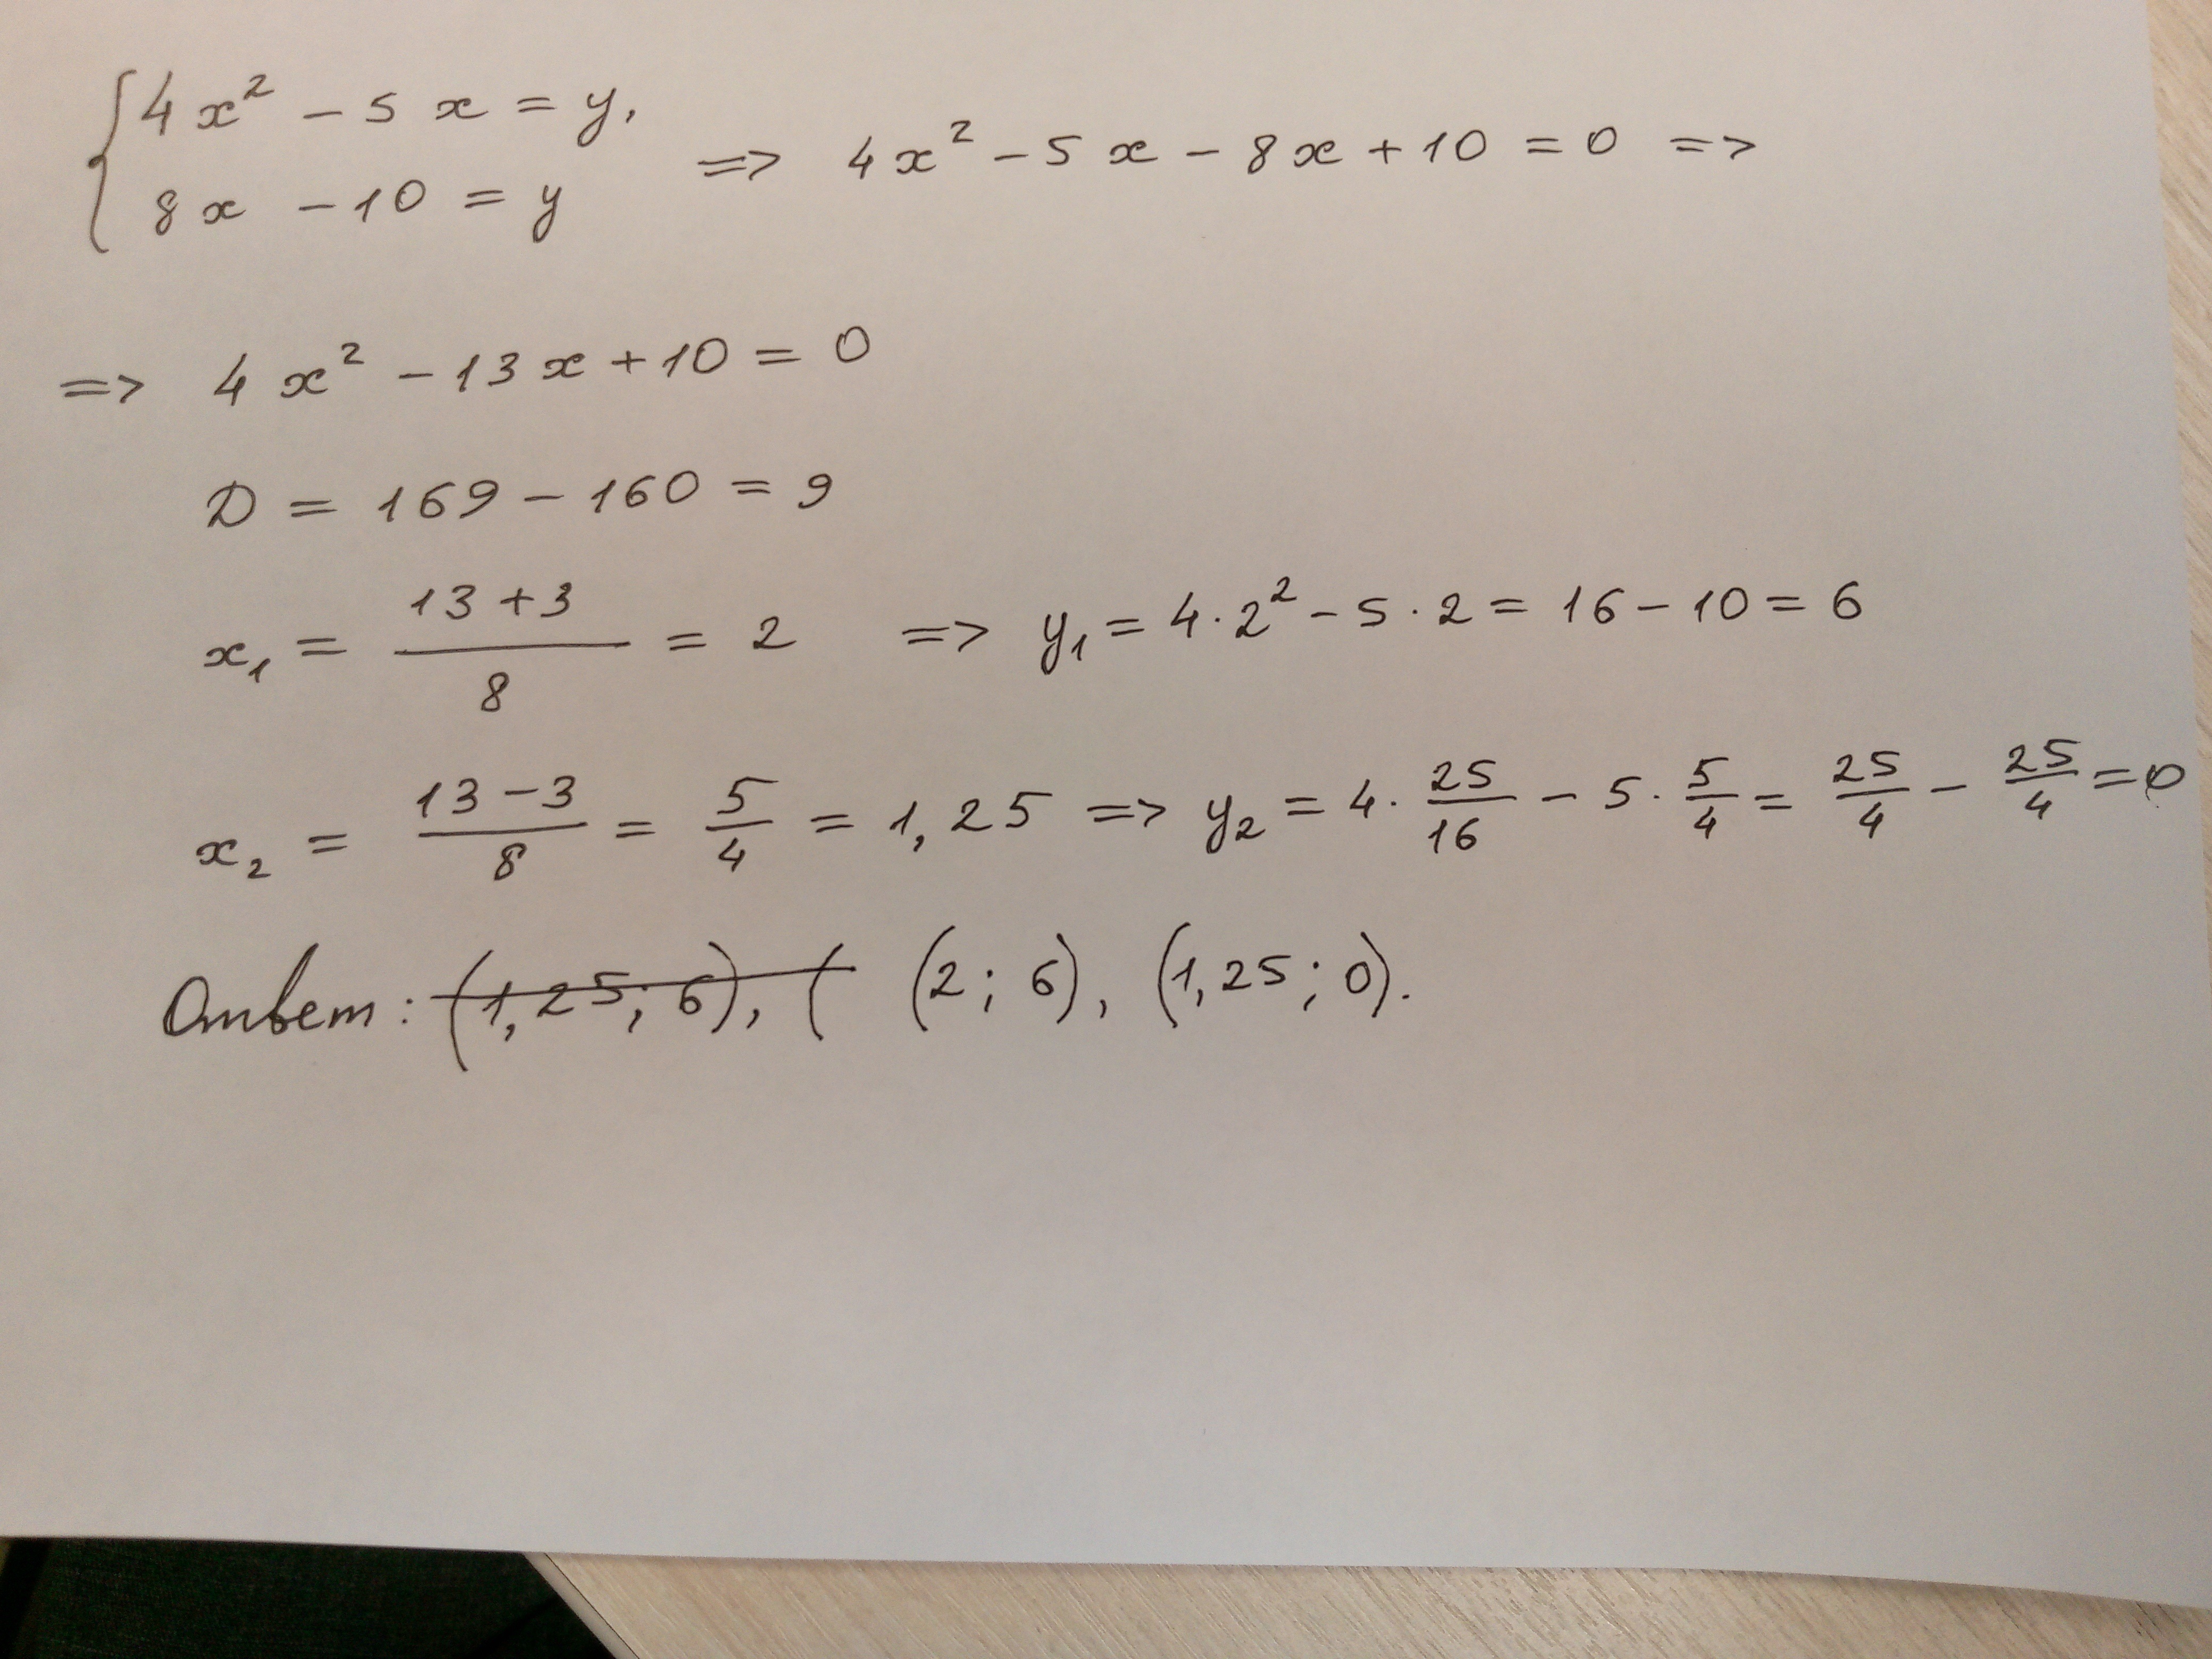 { 4x² - 5x = y,
8x - 10 = y => 4x² - 5x - 8x + 10 = 0 =>
=> 4x² - 13x + 10 = 0
D = 169 - 160 = 9
x₁ = (13 + 3)/8 = 2 => y₁ = 4·2² - 5·2 = 16 - 10 = 6
x₂ = (13 - 3)/8 = 5/4 = 1,25 => y₂ = 4·25/16 - 5·5/4 = 25/4 - 25/4 = 0
Ответ: (1,25; 6), ( (2; 6), (1,25; 0).